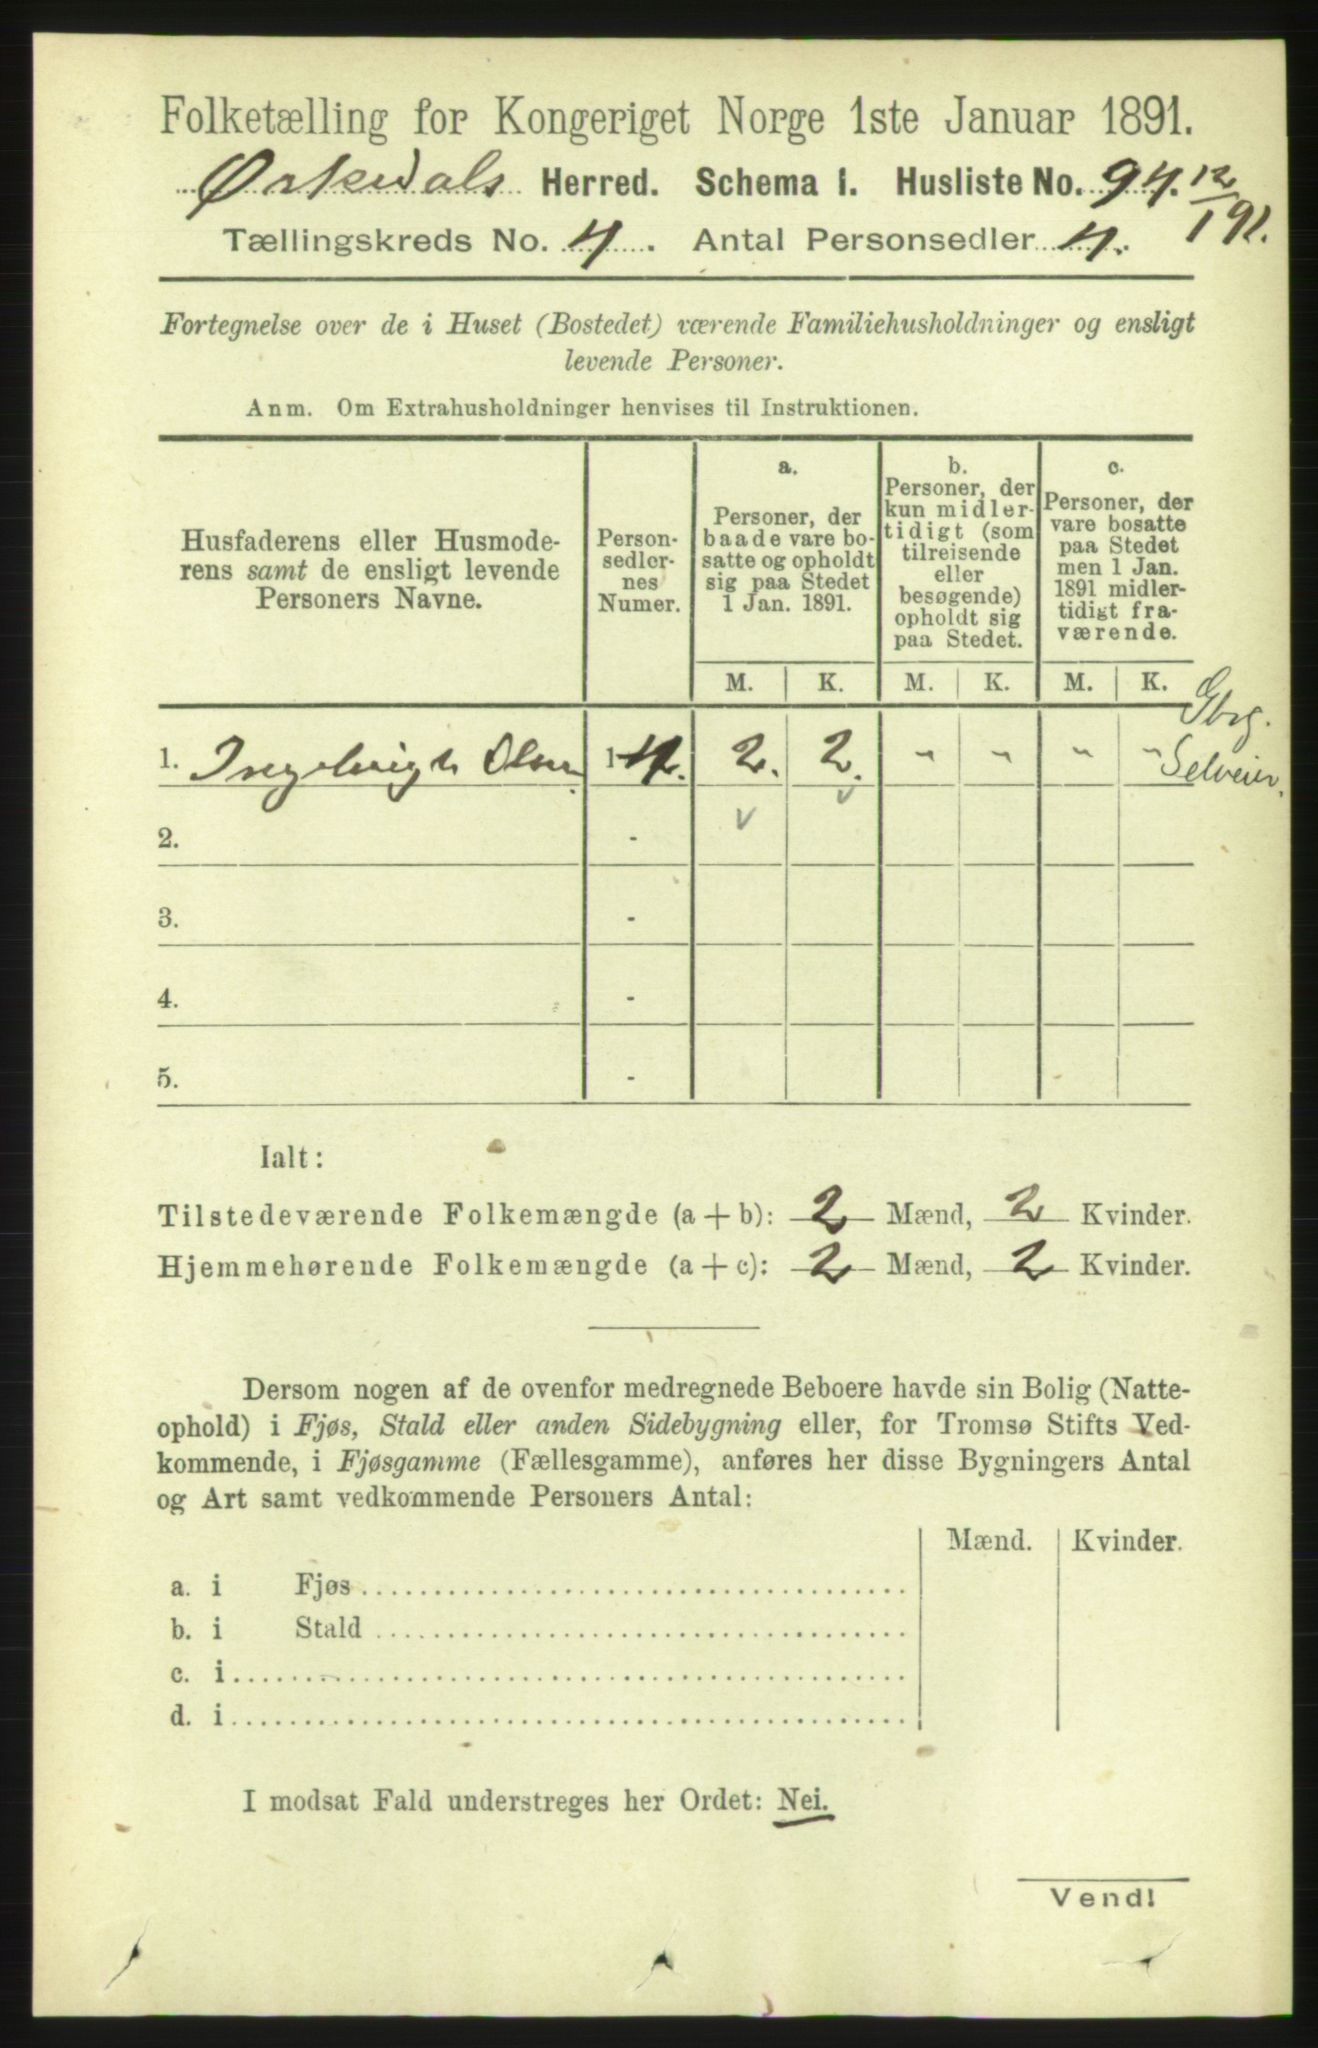 Folketælling for Kongeriget Norge 1ste Januar 1891.
Ørkedals Herred. Schema I. Husliste No. 94. 12/1 91.
Tællingskreds No. 4. Antal Personsedler 4.
Fortegnelse over de i Huset (Bostedet) værende Familiehusholdninger og ensligt
levende Personer.
Anm. Om Extrahusholdninger henvises til Instruktionen.
Husfaderens eller Husmode-
rens samt de ensligt levende
Personers Navne.
Person-
sedler-
nes
Numer.
a.
Personer, der
baade vare bo-
satte og opholdt
sig paa Stedet
1 Jan. 1891.
b.
Personer, der
kun midler-
tidigt (som
tilreisende
eller
besøgende)
opholdt sig
paa Stedet.
c.
Personer, der
vare bosatte
paa Stedet
men 1 Jan.
1891 midler-
tidigt fra-
værende.
M. K. M. K. M. K.
Gbrg.
1. Ingebrigt Olsen 1-4. 2. 2. " " " " Selveier.
2. -
3. -
4. -
5. -
Ialt:
Tilstedeværende Folkemængde (a + b): 2 Mænd, 2 Kvinder.
Hjemmehørende Folkemængde (a + c): 2 Mænd, 2 Kvinder.
Dersom nogen af de ovenfor medregnede Beboere havde sin Bolig (Natte-
ophold) i Fjøs, Stald eller anden Sidebygning eller, for Tromsø Stifts Ved-
kommende, i Fjøsgamme (Fællesgamme), anføres her disse Bygningers Antal
og Art samt vedkommende Personers Antal:
Mænd. Kvinder.
a. i Fjøs
b. i Stald
c. i
d. i
I modsat Fald understreges her Ordet: Nei.
Vend!